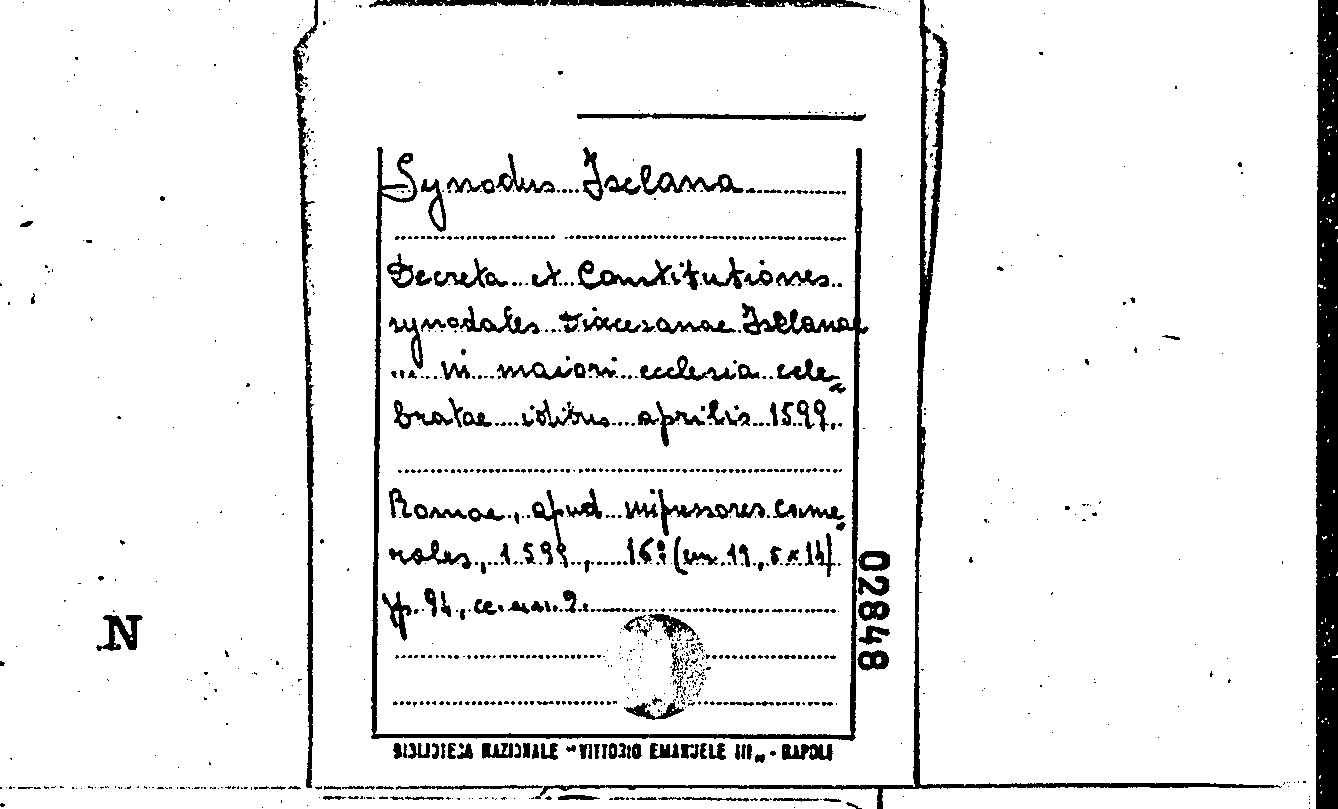 Synodus Isclana
Decreta et Constitutiones
synodales Dioecesanae Isclanae
... in maiori ecclesia cele=
bratae idibus aprilis 1599.
Romae, apud impressores came=
rales, 1599, 16º (cm 19,5 x 14)
pp. 94, cc. nn. 9.
02848
N
BIBLIOTECA NAZIONALE "VITTORIO EMANUELE III" - NAPOLI